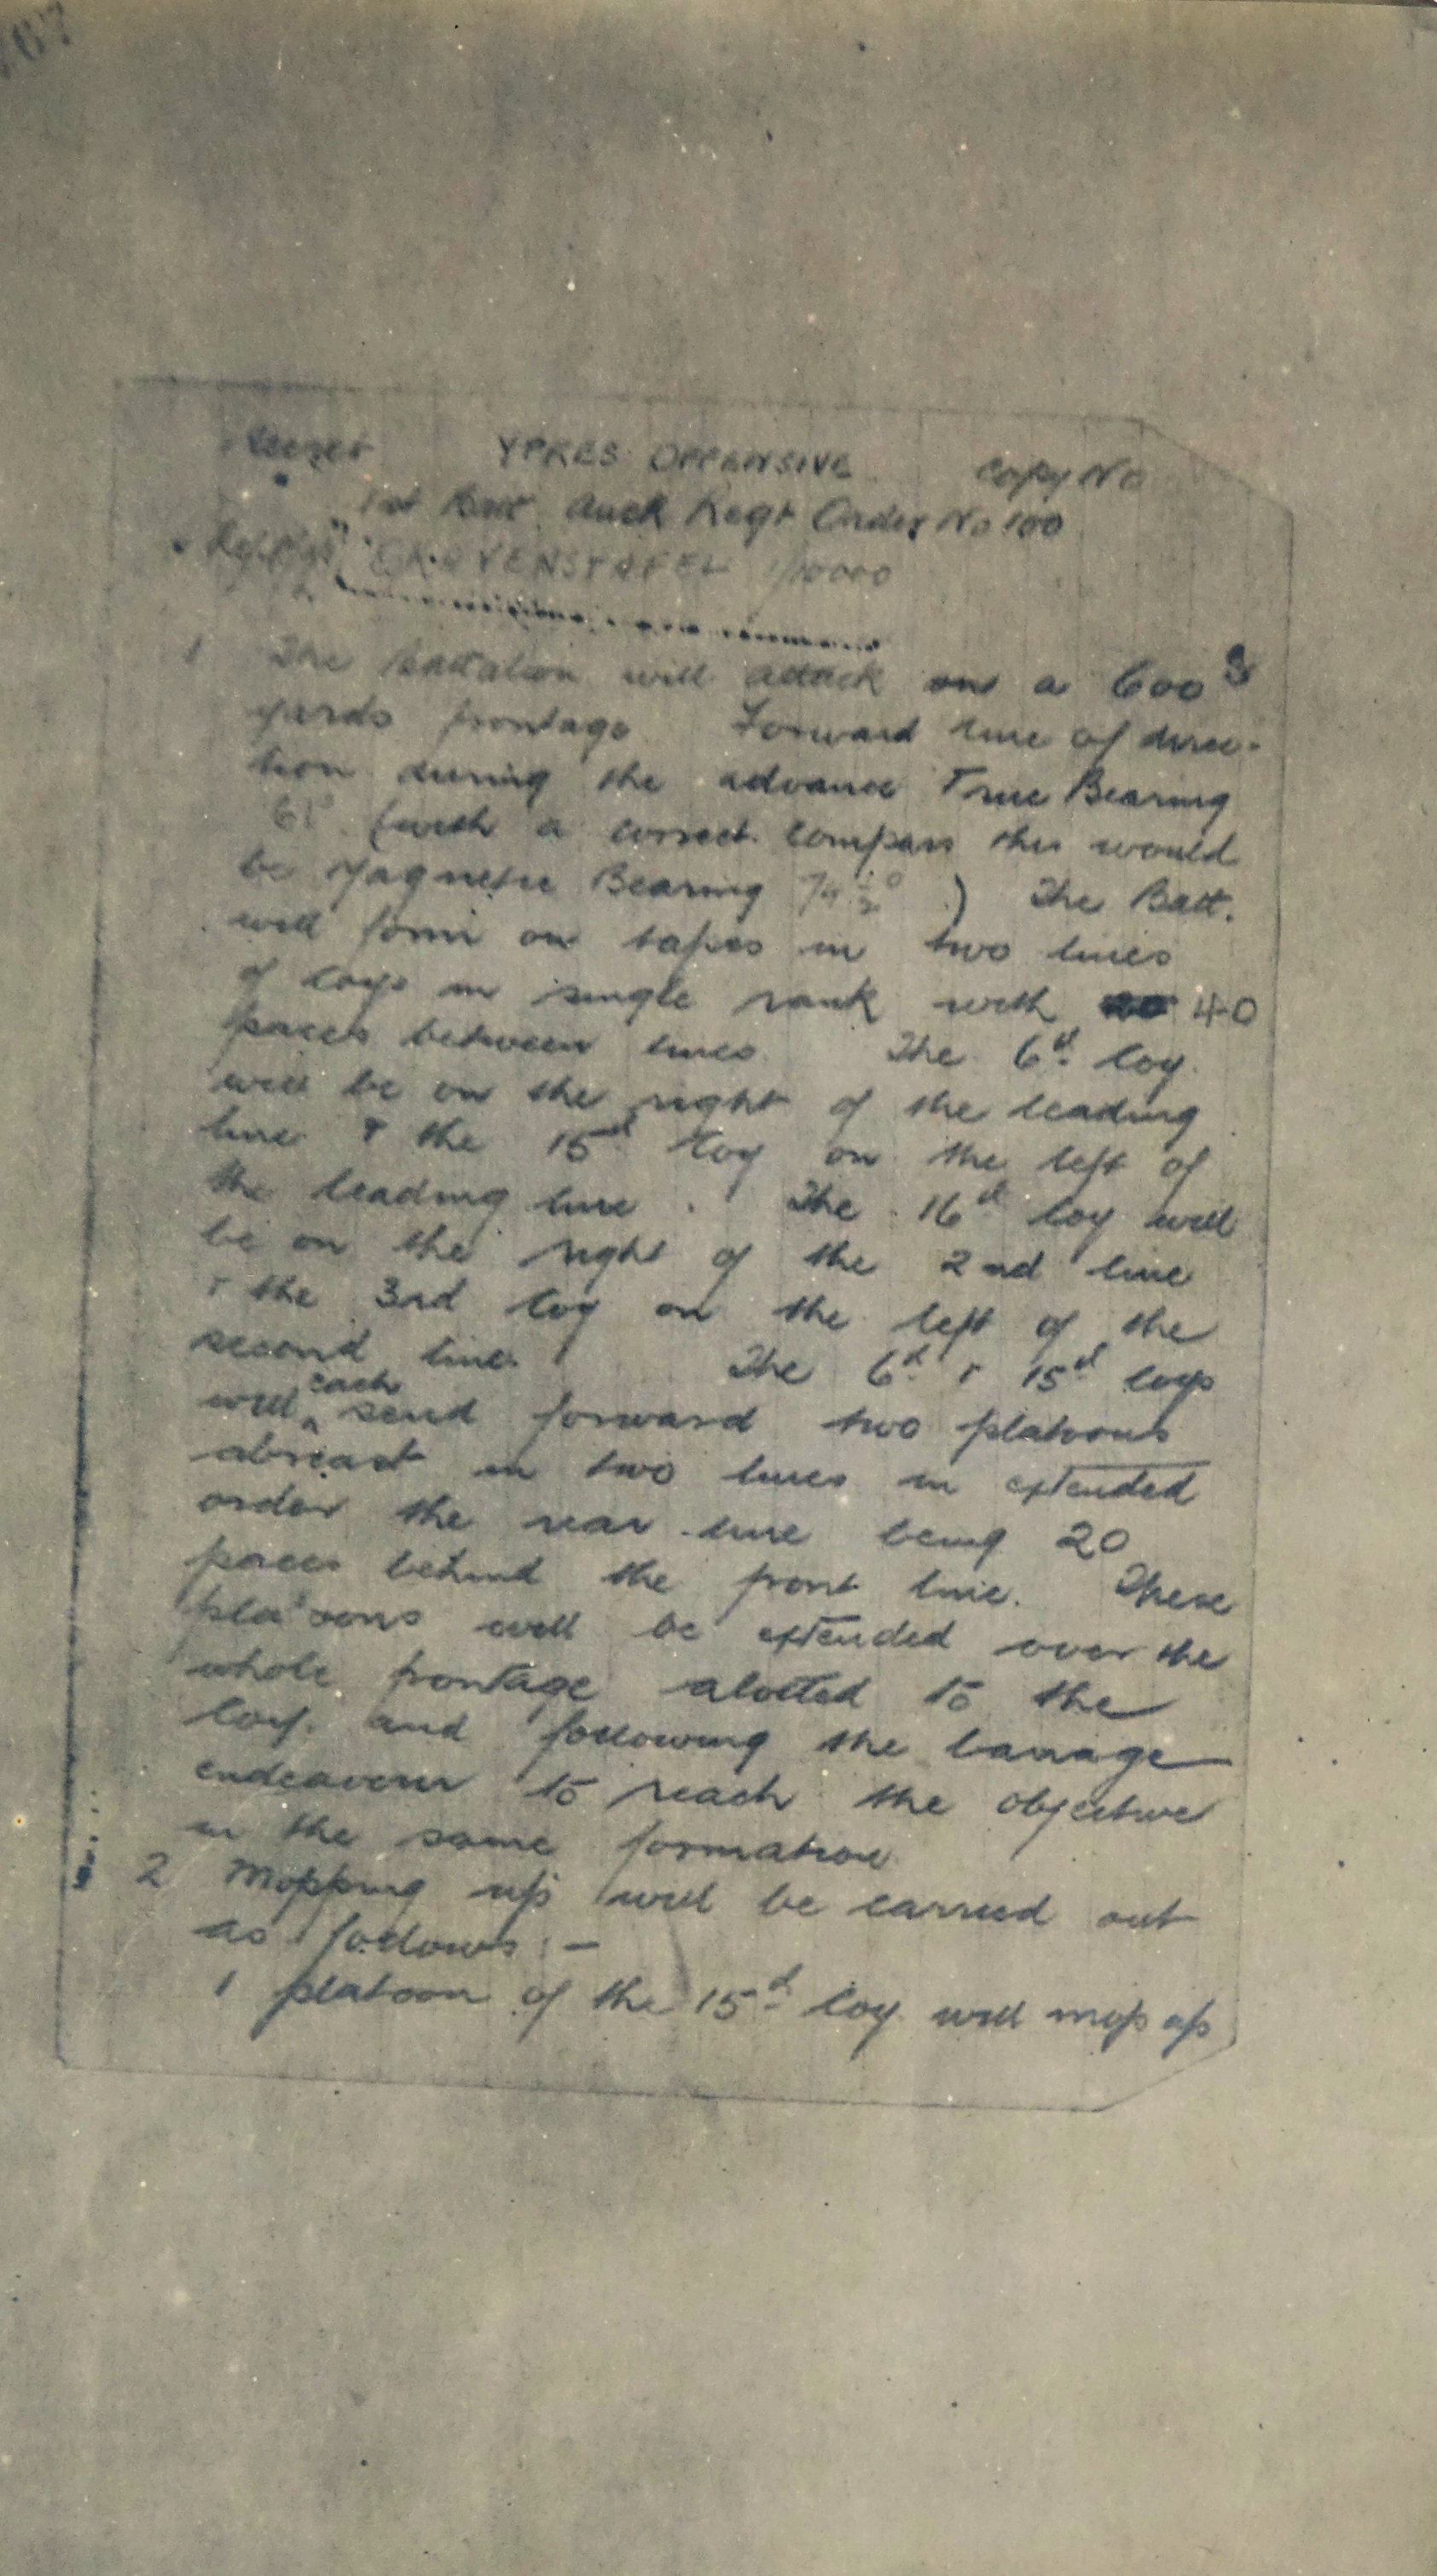 Secret YPRES OFFENSIVE Copy No
1st Batt. Auck Regt Order No 100
Ref Map "GRAVENSTAFEL 1/10000
1 The Battalion will attack on a 600
yards frontage Forward line of direc-
tion during the advance True Bearing
61° (with a correct compass this would
be Magnetic Bearing 74½°) The Batt.
will form on tapes in two lines
of coys in single rank with 40
paces between lines The 6th Coy.
will be on the right of the leading
line & the 15th Coy on the left of
the leading line. The 16th Coy will
be on the right of the 2nd line
& the 3rd Coy on the left of the
second line. The 6th & 15th Coys
will each send forward two platoons
abreast in two lines in extended
order the rear line being 20
paces behind the front line. These
platoons will be extended over the
whole frontage alotted to the
Coy. and following the barrage
endeavour to reach the objective
in the same formation
2 Mopping up will be carried out
as follows :-
1 platoon of the 15th Coy. will mop up